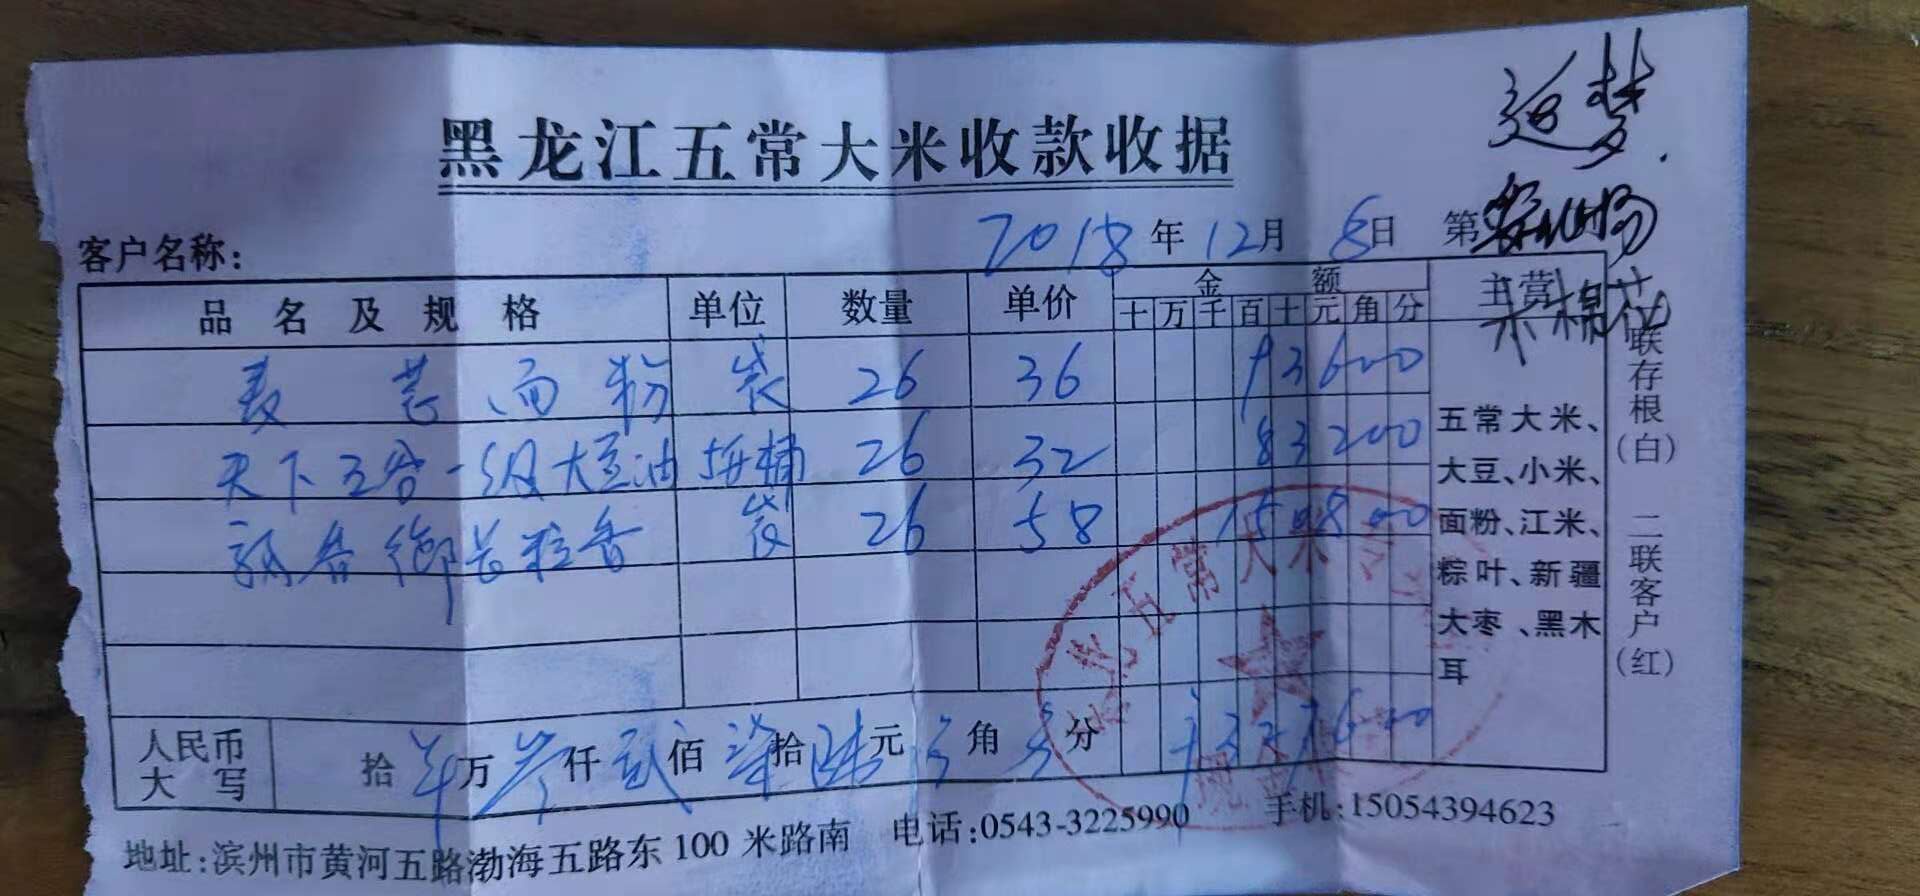 黑龙江五常大米收款收据
追梦
客户名称: 2018年12月8日 第
木棉花
品名及规格 单位 数量 单价 金额 主营
十万千百十元角分
麦芯面粉 袋 26 36 93600
天下五谷一级大豆油 桶 26 32 83200
稻香乡长粒香 袋 26 58 150800
五常大米、
大豆、小米、
面粉、江米、
粽叶、新疆
大枣、黑木
耳
一联存根(白) 二联客户(红)
人民币大写 拾 万叁仟贰佰柒拾陆元 角 分 ¥327600
五常大米
地址:滨州市黄河五路渤海五路东100米路南 电话:0543-3225990 手机:15054394623